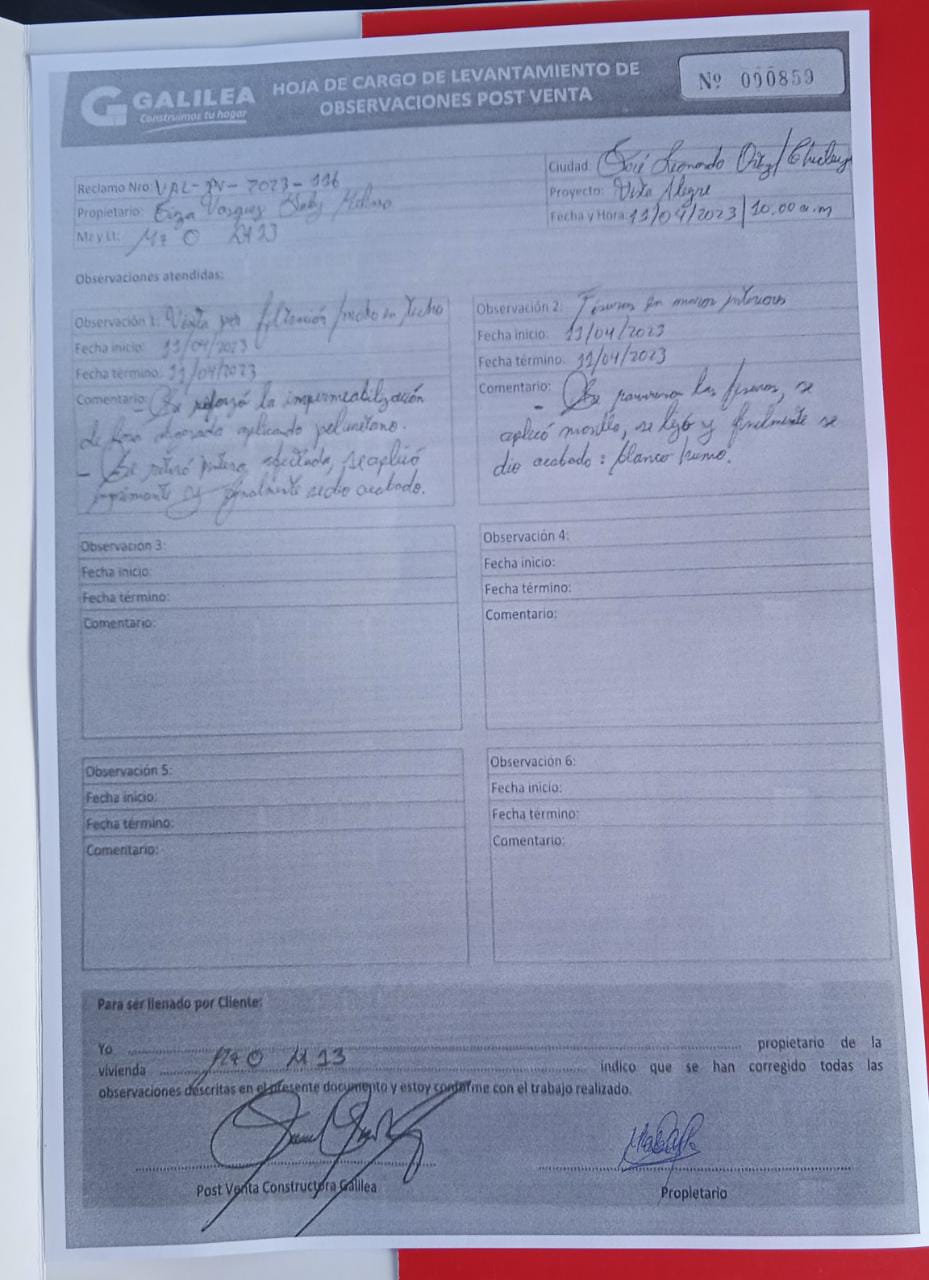 GALILEA
Construimos tu hogar
HOJA DE CARGO DE LEVANTAMIENTO DE
OBSERVACIONES POST VENTA
Nº 090859
Reclamo Nro: VAL-PV-2023-116
Propietario: Vasquez
Mz y Lt: Mz O Lt 13
Ciudad: José Leonardo Ortiz/Chiclayo
Proyecto: Vista Alegre
Fecha y Hora: 11/04/2023 | 10:00 a.m
Observaciones atendidas:
Observación 1: Visita por filtración en techo
Fecha inicio: 11/04/2023
Fecha término: 11/04/2023
Comentario: - Se reforzó la impermeabilización
de aplicando poliuretano.
- Se retiró pintura afectada, se aplicó
imprimante y finalmente se dio acabado.
Observación 2: Fisuras en muros interiores
Fecha inicio: 11/04/2023
Fecha término: 11/04/2023
Comentario: - Se las fisuras, se
aplicó masilla, se lijó y finalmente se
dio acabado: blanco humo.
Observación 3:
Fecha inicio:
Fecha término:
Comentario:
Observación 4:
Fecha inicio:
Fecha término:
Comentario:
Observación 5:
Fecha inicio:
Fecha término:
Comentario:
Observación 6:
Fecha inicio:
Fecha término:
Comentario:
Para ser llenado por Cliente:
Yo propietario de la
vivienda Mz O Lt 13 indico que se han corregido todas las
observaciones descritas en el presente documento y estoy conforme con el trabajo realizado.
Post Venta Constructora Galilea
Propietario